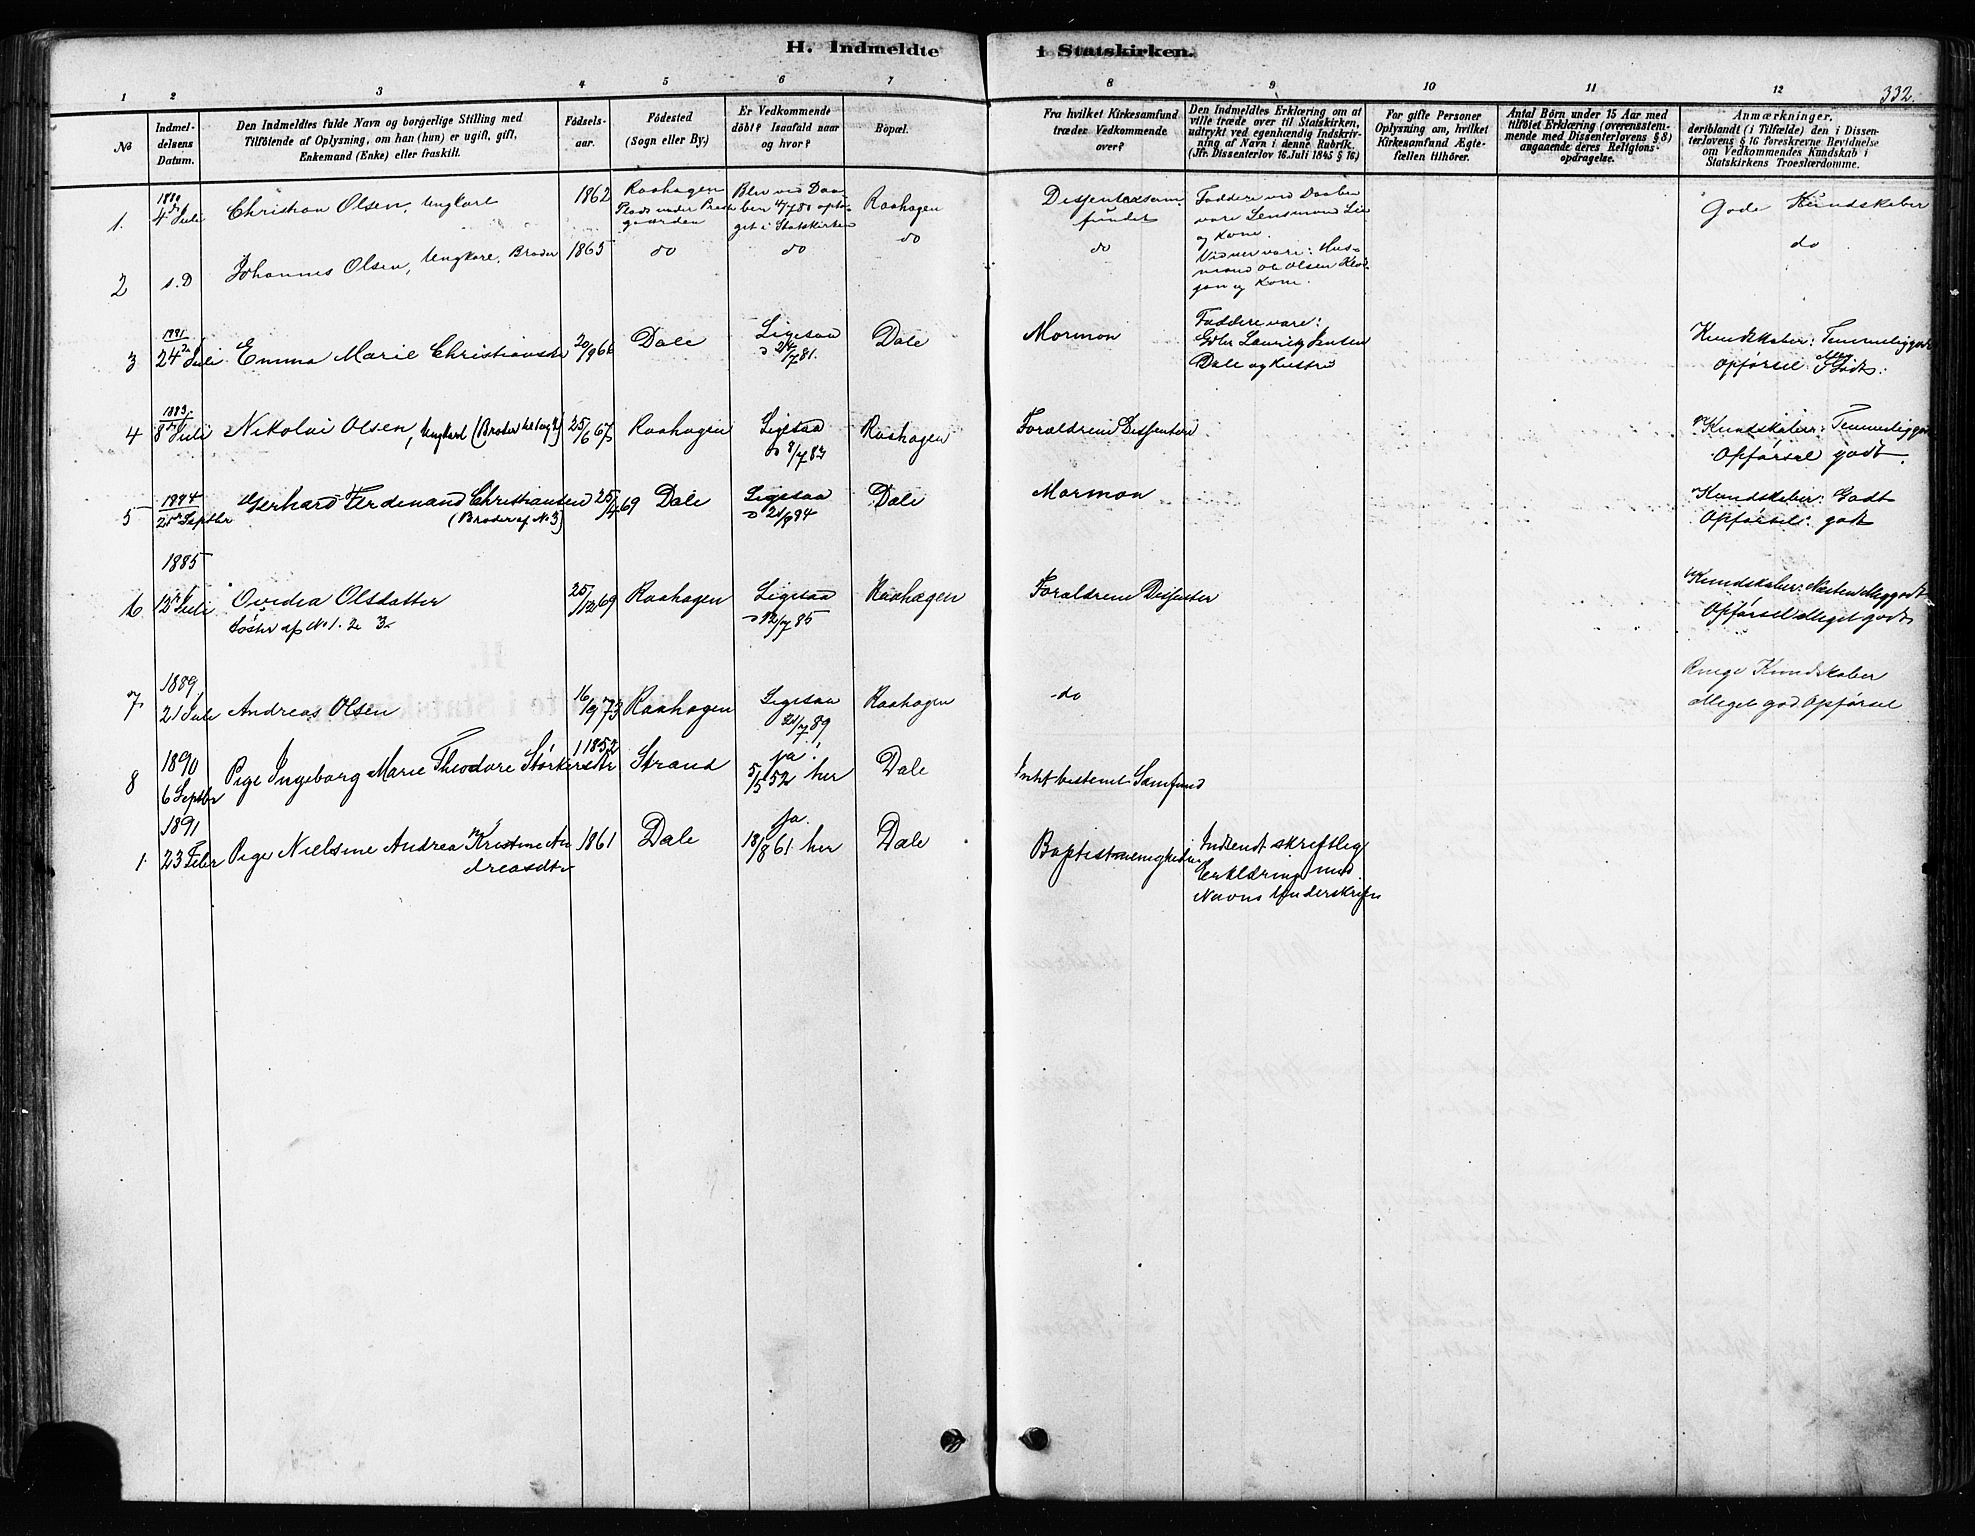 H. Indmeldte i Statskirken.
332.
1 2 3 4 5 6 7 8 9 10 11 12
No
Indmel-
delsens
Datum.
Den Indmeldtes fulde Navn og borgerlige Stilling med
Tilföiende af Oplysning, om han (hun) er ugift, gift,
Enkemand (Enke) eller fraskilt.
Födsels-
aar.
Födested
(Sogn eller By.)
Er Vedkommende
döbt? Isaafald naar
og hvor?
Bopæl.
Fra hvilket Kirkesamfund
træder Vedkommende
over?
Den Indmeldtes Erklæring om at
ville træde over til Statskirken,
udtrykt ved egenhændig Indskriv-
ning af Navn i denne Rubrik.
(Jfr. Dissenterlov 16. Juli 1845 § 16.)
For gifte Personer
Oplysning om, hvilket
Kirkesamfund Ægte-
fællen tilhörer.
Antal Börn under 15 Aar med
tilföiet Erklæring (overensstem-
mende med Dissenterlovens § 8)
angaaende deres Religions-
opdragelse.
Anmærkninger,
deriblandt (i Tilfælde) den i Dissen-
terlovens § 16 foreskrevne Bevidnelse
om Vedkommendes Kundskab i
Statskirkens Troeslærdomme.
1880
1. 4de Juli Christian Olsen, Ungkarl 1862
Raahagen
Plads under Præste
gaarden
Blev ved Daa-
ben 4/7 80 opta-
get i Statskirken
Raahagen
Dissentersam-
fundet
Faddere vare ved Daaben
vare Lensmand Lie
og Kone.
Gode Kundskaber
2 s.D Johannes Olsen, Ungkarl, Broder 1865 do do do do
Vidner vare: Hus-
mand Ole Olsen
og Kone.
do
1881
3 24de Juli Emma Marie Christiansdr 20/9 66 Dale
Ligesaa
D 24/7 81.
Dale Mormon
Faddere vare:
Gbr Lauritz Jensen
Dale og Hustru
Kundskaber: Temmelig gode
Opförsel: Meget Godt.
1883
4 8de Juli Nikolai Olsen, Ungkarl (Broder til 1 og 2) 25/6 67 Raahagen
Ligesaa
D 8/7 83
Raahagen Forældrene Dissentere
Kundskaber: Temmelig gode
Opförsel godt.
1884
5 21de Septbr Gerhard Ferdinand Christiansen 25/4 69 Dale
(Broder af No 3)
Ligesaa
D 21/9 84
Dale Mormon
Kundskaber: Godt
Opförsel: godt
1885
6 12te Juli Ovidia Olsdatter
Söster af No 1. 2. 3.
25/12 69 Raahagen
Ligesaa
D 12/7 85
Raahagen Forældrene Dissenter
Kundskaber: Næsten Meg godt
Opförsel Meget godt
1889
7 21 Juli Andreas Olsen 16/9 73 Raahagen
Ligesaa
21/7 89
Raahagen do
Ringe Kundskaber
Meget god Opförsel
1890
8 6 Septbr Pige Ingeborg Marie Theodore Störkersdtr 1852 Strand
ja
5/5 52 her
Dale Intet bestemt Samfund
1891
1. 23 Febr Pige Nielsine Andrea Kristine An-
dreasdtr
1861 Dale
ja.
18/8 61 her
Dale Baptistmenigheden
Indsendt skriftlig
Erklæring med
Navns Underskrift